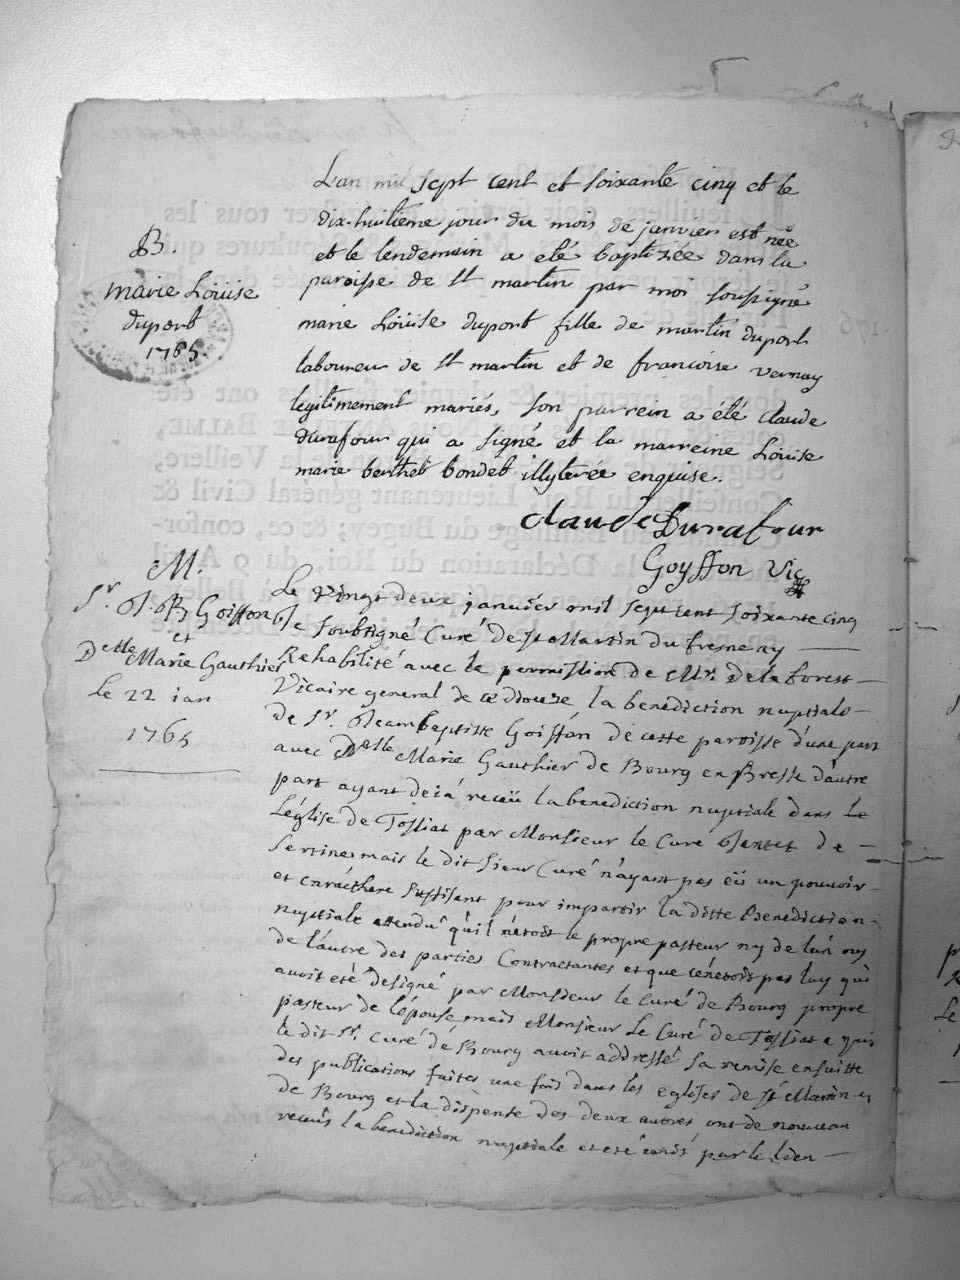 L'an mil sept cent et soixante cinq et le
dix-huitieme jour du mois de janvier est née
et le lendemain a eté baptisée dans la
paroisse de St martin par moi soussigné
marie Loüise duport fille de martin duport
laboureur de St martin et de francoise vernay
legitimement mariés, son parrein a été claude
durafour qui a signé et la marreine Loüise
marie berthet bondet illyterée enquise.
claude Durafour
Goyffon Vic
B.
marie Loüise
duport
1765.
M.
Sr. J. B Goiffon
et
Delle Marie Gauthier
Le 22 ian
1765
Le vingt deux janvier mil sept cent soixante cinq
Je soubsigné Curé de St Martin du fresne ay
Rehabilité avec la permission de Mr. De la forest
Vicaire general de ce dioceze la benediction nuptiale
de Sr. Jean baptiste Goiffon de cette paroisse d'une part
avec Delle Marie Gauthier de Bourg en Bresse d'autre
part ayant deià receü la benediction nuptiale dans Le
L'église de Tossiat par Monsieur le Cure Jantet de
Sertines mais le dit sieur Curé n'ayant pas eü un pouvoir
et caracthere suffisant pour impartir la ditte Benediction
nuptiale attendu qu'il n'etoit le propre pasteur ny de lun ny
de lautre des parties Contractantes et que cénétoit pas luy qui
avoit eté designé par Monsieur le Curé de Bourg propre
pasteur de l'épouse mais Monsieur Le Curé de Tossiat a qui
le dit Sr. Curé de Bourg avoit addressé sa remise ensuitte
des publications faites une fois dans les eglises de St Martin et
de Bourg et la dispense des deux autres ont de nouveau
receus la benediction nuptiale et eté par le lien